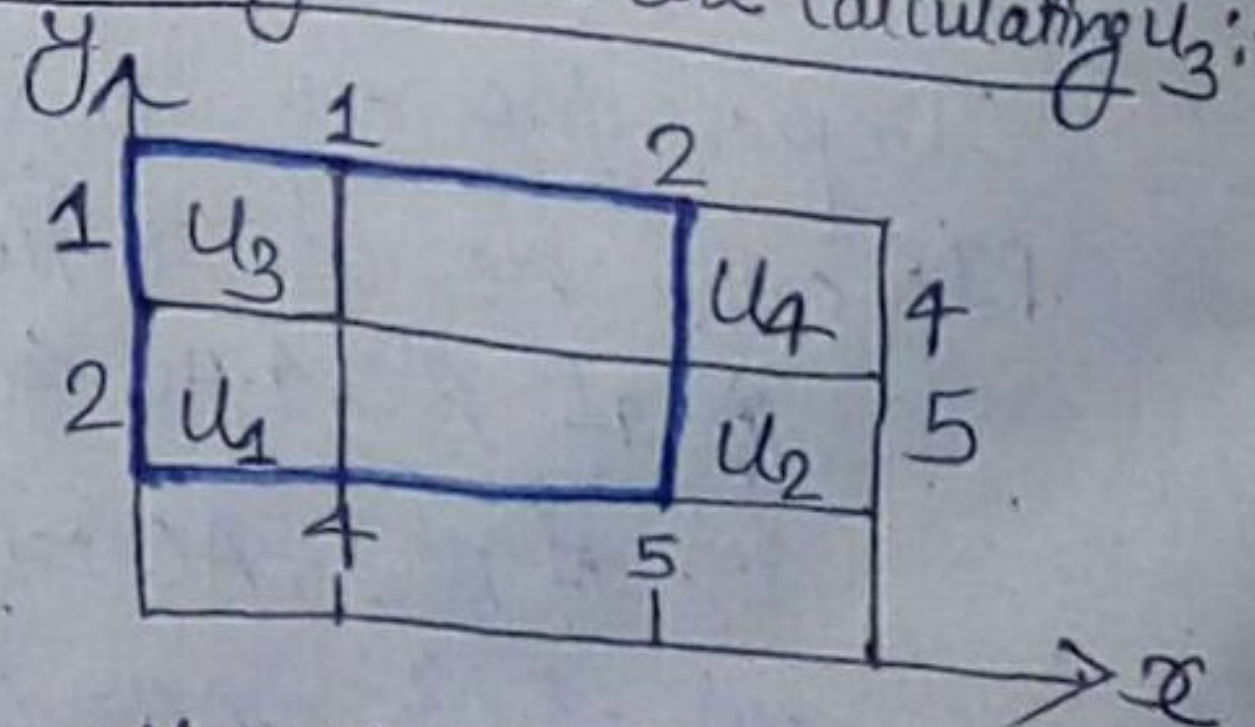 Calculating u₃:
y
1 2
1 u₃ u₄ 4
2 u₁ u₂ 5
4 5
x